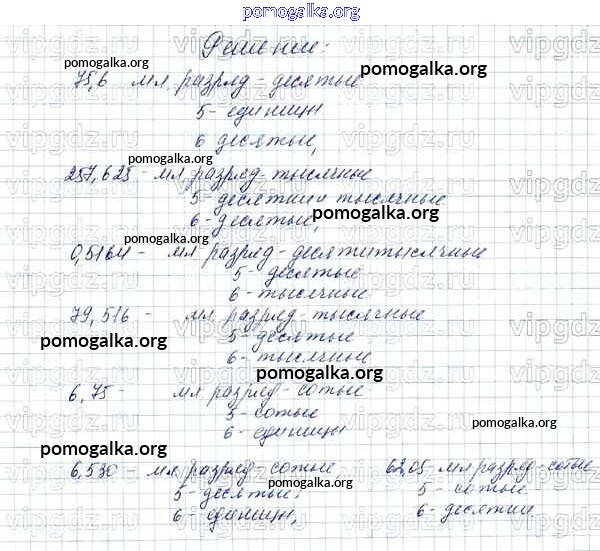 pomogalka.org
Решение:
75,6 мл разряд - десятые
5 - единицы
6 десятые,
257,625 - мл разряд - тысячные
5 - десятки и тысячные
6 - десятые,
0,5164 - мл разряд - десятитысячные
5 - десятые
6 - тысячные
79,516 - мл разряд - тысячные
5 - десятые
6 - тысячные
6,75 - мл разряд - сотые
5 - сотые
6 - единицы
6,530 - мл разряд - сотые,
5 - десятые;
6 - единицы,
62,05 мл разряд - сотые
5 - сотые
6 - десятки
pomogalka.org
pomogalka.org
pomogalka.org
pomogalka.org
pomogalka.org
pomogalka.org
pomogalka.org
pomogalka.org
pomogalka.org
pomogalka.org
pomogalka.org
vipgdz.ru